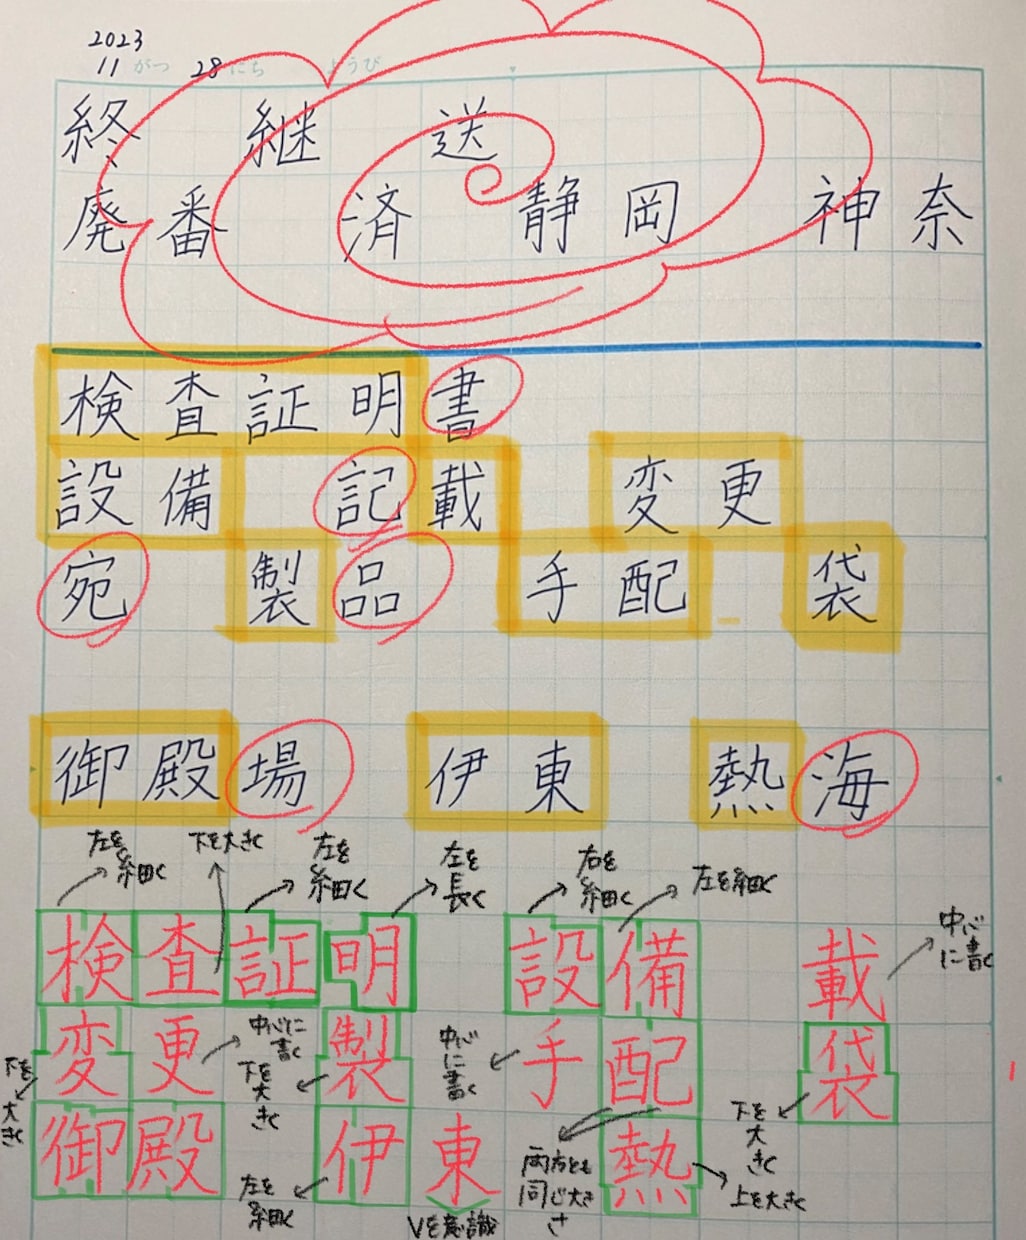 2023
11 がつ 28 にち ようび
終 継 送
廃番 済 静岡 神奈
検査証明書
設備 記載 変更
宛 製品 手配 袋
御殿場 伊東 熱海
左を細く 下を大きく 左を細く 左を長く 右を細く 左を細く
検査証明 設備 載
中心に書く
変更 製 手配 袋
下を大きく 中心に書く 下を大きく 中心に書く 下を大きく
御殿 伊東 熱
左を細く Vを意識 両方とも同じ大きさ 上を大きく